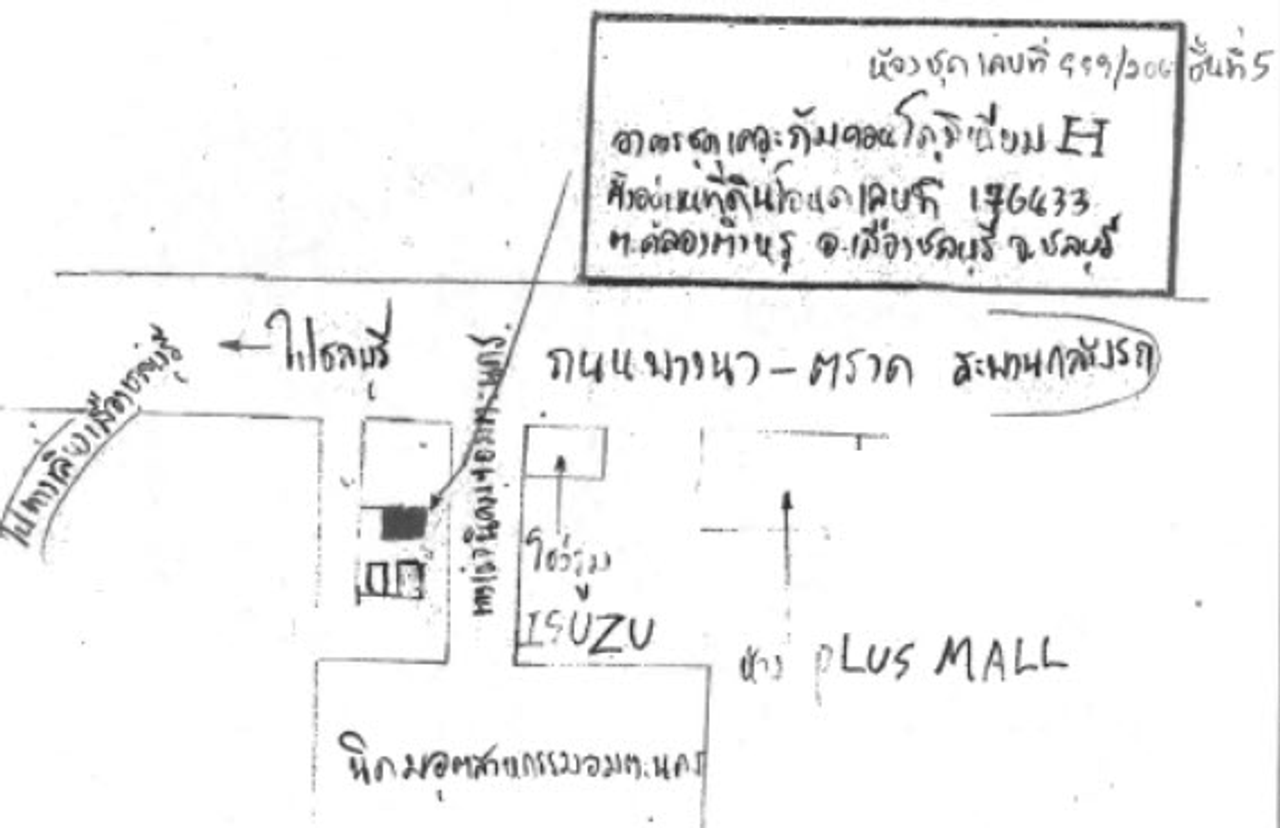 ห้องชุดเลขที่ 999/206 ชั้นที่ 5
อาคารชุดเดอะกัมคอนโดมิเนียม H
ตั้งอยู่บนที่ดินโฉนดเลขที่ 176433
ต.คลองตำหรุ อ.เมืองชลบุรี จ.ชลบุรี
ไปชลบุรี
ถนนบางนา-ตราด
สะพานกลับรถ
ไปทางเลี่ยงเมืองชลบุรี
ทางเข้านิคมฯอมตะนคร.
โชว์รูม
ISUZU
ห้าง PLUS MALL
นิคมอุตสาหกรรมอมตะนคร